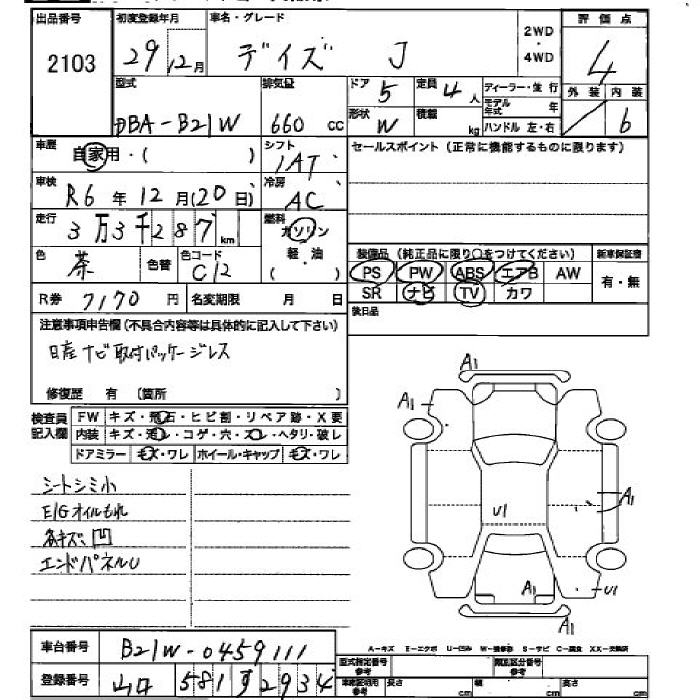 出品番号
2103
初度登録年月
29 12月
車名・グレード
デイズ J
2WD
・
4WD
評価点
4
外装 内装
6
型式
DBA-B21W
排気量
660 cc
ドア
5
定員
4人
形状
W
積載
kg
ディーラー・並行
モデル年式 年
ハンドル 左・右
車歴
自家用・( )
シフト
IAT
セールスポイント (正常に機能するものに限ります)
車検
R6年12月(20日)
冷房
AC
走行
3万3千287km
燃料
ガソリン
軽・油
( )
色
茶
色替
色コード
C12
装備品 (純正品に限り○をつけてください)
新車保証書
PS PW ABS エアB AW
有・無
SR ナビ TV カワ
R券 7170円
名変期限 月 日
後日品
注意事項申告欄 (不具合内容等は具体的に記入して下さい)
日産ナビ取付パッケージレス
修復歴 有 (箇所 )
検査員
記入欄
FW キズ・飛石・ヒビ割・リペア跡・X要
内装 キズ・汚レ・コゲ・穴・スレ・ヘタリ・破レ
ドアミラー キズ・ワレ ホイール・キャップ キズ・ワレ
シートシミ小
E/Gオイルもれ
各キズ凹
エンドパネルU
A1
A1
A1
U1
A1
U1
A1
車台番号
B21W-0459111
登録番号
山口 581 す 2934
A-キズ E-エクボ U-凹み W-補修跡 S-サビ C-腐食 XX-交換済
型式指定番号
参考
類別区分番号
参考
長さ cm 幅 cm 高さ cm